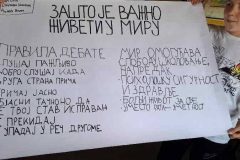 ЗАШТО ЈЕ ВАЖНО
ЖИВЕТИ У МИРУ
ПРАВИЛА ДЕБАТЕ
СЛУШАЈ ПАЖЉИВО
ДОБРО СЛУШАЈ КАДА
ДРУГА СТРАНА ПРИЧА
ПРИЧАЈ ЈАСНО
ОБЈАСНИ ТАЧНО ДА
ЈЕ ТВОЈ СТАВ ИСПРАВАН
НЕ ПРЕКИДАЈ
НЕ УПАДАЈ У РЕЧ ДРУГОМЕ
МИР ОМОГУЋАВА
СЛОБОДУ, ШКОЛОВАЊЕ,
НАПРЕДАК
ПСИХОЛОШКУ СИГУРНОСТ
И ЗДРАВЉЕ
БОЉИ ЖИВОТ ЗА СВЕ